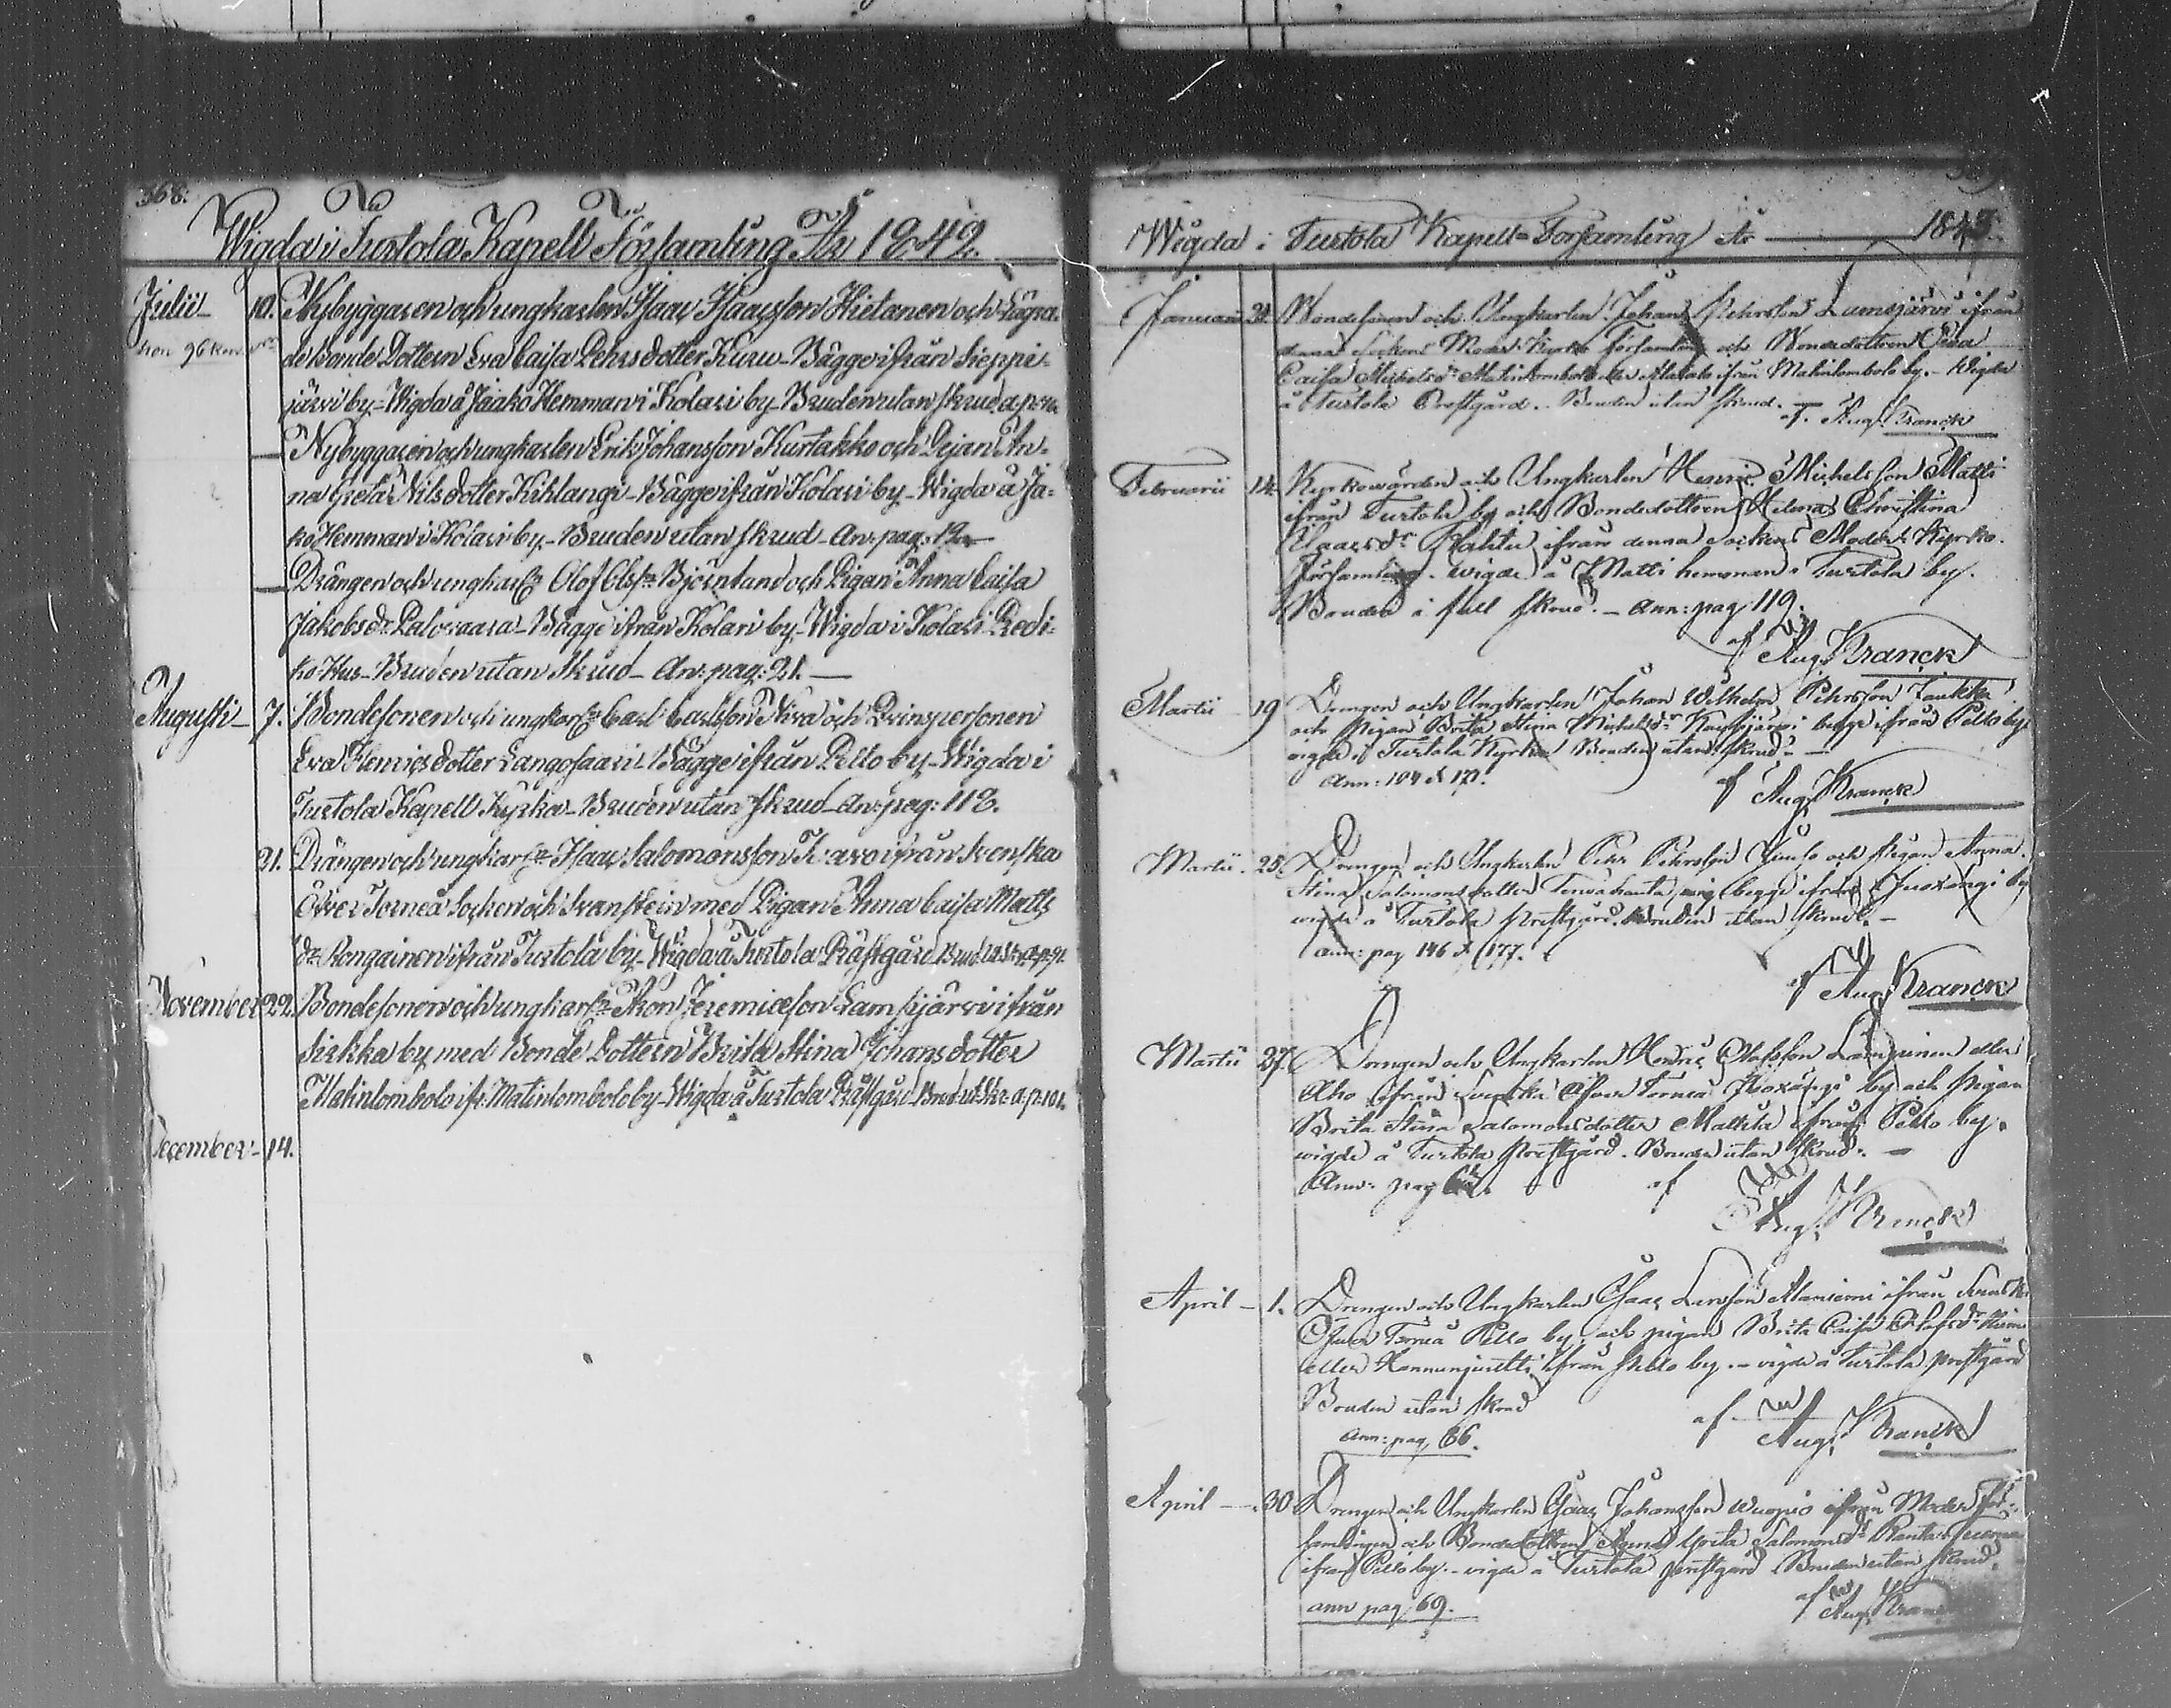 368.
Wigda i Turtola Kapell Församling År 1842.
Julii 10. Nybyggaren och ungkarlen Isaac Isaacsson Hietanen och Lägra-
de bonde Dottern Eva Caisa Pehrsdotter Kuru - Bägge ifrån Sieppi-
järvi by - Wigda å Jaako Hemman i Kolari by - Bruden utan skrud
— Nybyggaren och ungkarlen Erik Johansson Kurtakko och Pejan An-
na Greta Nilsdotter Kihlangi - Bägge ifrån Kolari by - Wigda å Ja-
ko Hemman i Kolari by - Bruden utan skrud - An: pag: 12
— Drängen och ungkarln Olof Olsson Björnland och Pigan Anna Caisa
Jakobsdr Palovaara - Bägge ifrån Kolari by - Wigda i Kolari Redi-
ko Hus - Bruden utan Skrud - An: pag: 21. —
Augusti 7. Bondesonen och ungkarln Carl Carlsson Niva och Qvinspersonen
Eva Henricsdotter Langosaari - Bägge ifrån Pello by - Wigda i
Turtola Kapell Kyrka - Bruden utan skrud - An: pag: 118.
21. Drängen och ungkarln Isaac Salomonsson ifrån Svenska
Öfver Torneå Socken och Svanstein med Pigan Anna Caisa Matts
dr Rongainen ifrån Turtola by - Wigda å Turtola Prästgård
November 22. Bondesonen och ungkarln Jeremiæson Lamsijärvi ifrån
Sirkka by med Bonde Dottern Brita Stina Johansdotter
Matinlombolo ifr. Matinlombolo by - Wigda å Turtola Prästgård
December - 14.
Wigda i Turtola Kapell-Församling År — 1843.
Januari Bondesonen och Ungkarlen Johan Pehrsson Lamsijärvi ifrån
denna Sockens Moder Församling och Bondedottren Eva
Caisa Michelsdr Matinlombolo ifrån Matinlombolo by. - Wigda
å Turtola Prestgård. Bruden utan skrud. — af Aug. Kranck
Februarii 14. Kyrkowärden och Ungkarlen Henric Michelsson Matti
ifrån Turtola by och Bondedottren Helena Christina
Isaacsdr ifrån denna Sockens Moder Kyrko-
Församling. wigde å Matti hemman i Turtola by.
Bruden i full skrud. - ann: pag 119.
af Aug. Kranck
Martii 19 Drengen och Ungkarlen Johan Wilhelm Pehrsson
och Pigan Brita Stina Michelsdr begge ifrån Pello by,
vigde i Turtola Kyrka Bruden utan skrud. —
Ann: 104
af Aug. Kranck
Martii. 25. Drengen och Ungkarlen Pehr Pehrsson Juuso och Pigan Anna
Stina Salomonsdotter begge ifrån Juoxengi by
wigde å Turtola Prestgård. Bruden utan skrud. -
ann: pag 146 & 177.
af Aug. Kranck
Martii 27. Drengen och Ungkarlen Henric Olofsson Lampinen eller
Aho ifrån Svenska Öfver Torneå by och Pigan
Brita Stina Salomonsdotter Mattila ifrån Pello by.
wigde å Turtola Prestgård. Bruden utan skrud. —
Ann: pag
af Aug. Kranck
April - 1. Drengen och Ungkarlen Isaac Larsson Alaniemi ifrån Svensk
Öfver Torneå Pello by, och pigan Brita Caisa Olofsdr
eller ifrån Pello by. - vigde å Turtola prestgård
Bruden utan skrud
Ann: pag, 66.
af Aug. Kranck
April — 30 Drengen och Ungkarlen Isaac Johansson Wuopio ifrån Moder För-
samlingen och Bondedottren Greta Salomonsdr
ifrån Pello by. - vigde å Turtola prestgård Bruden utan skrud.
ann pag, 69.
af Aug. Kranck